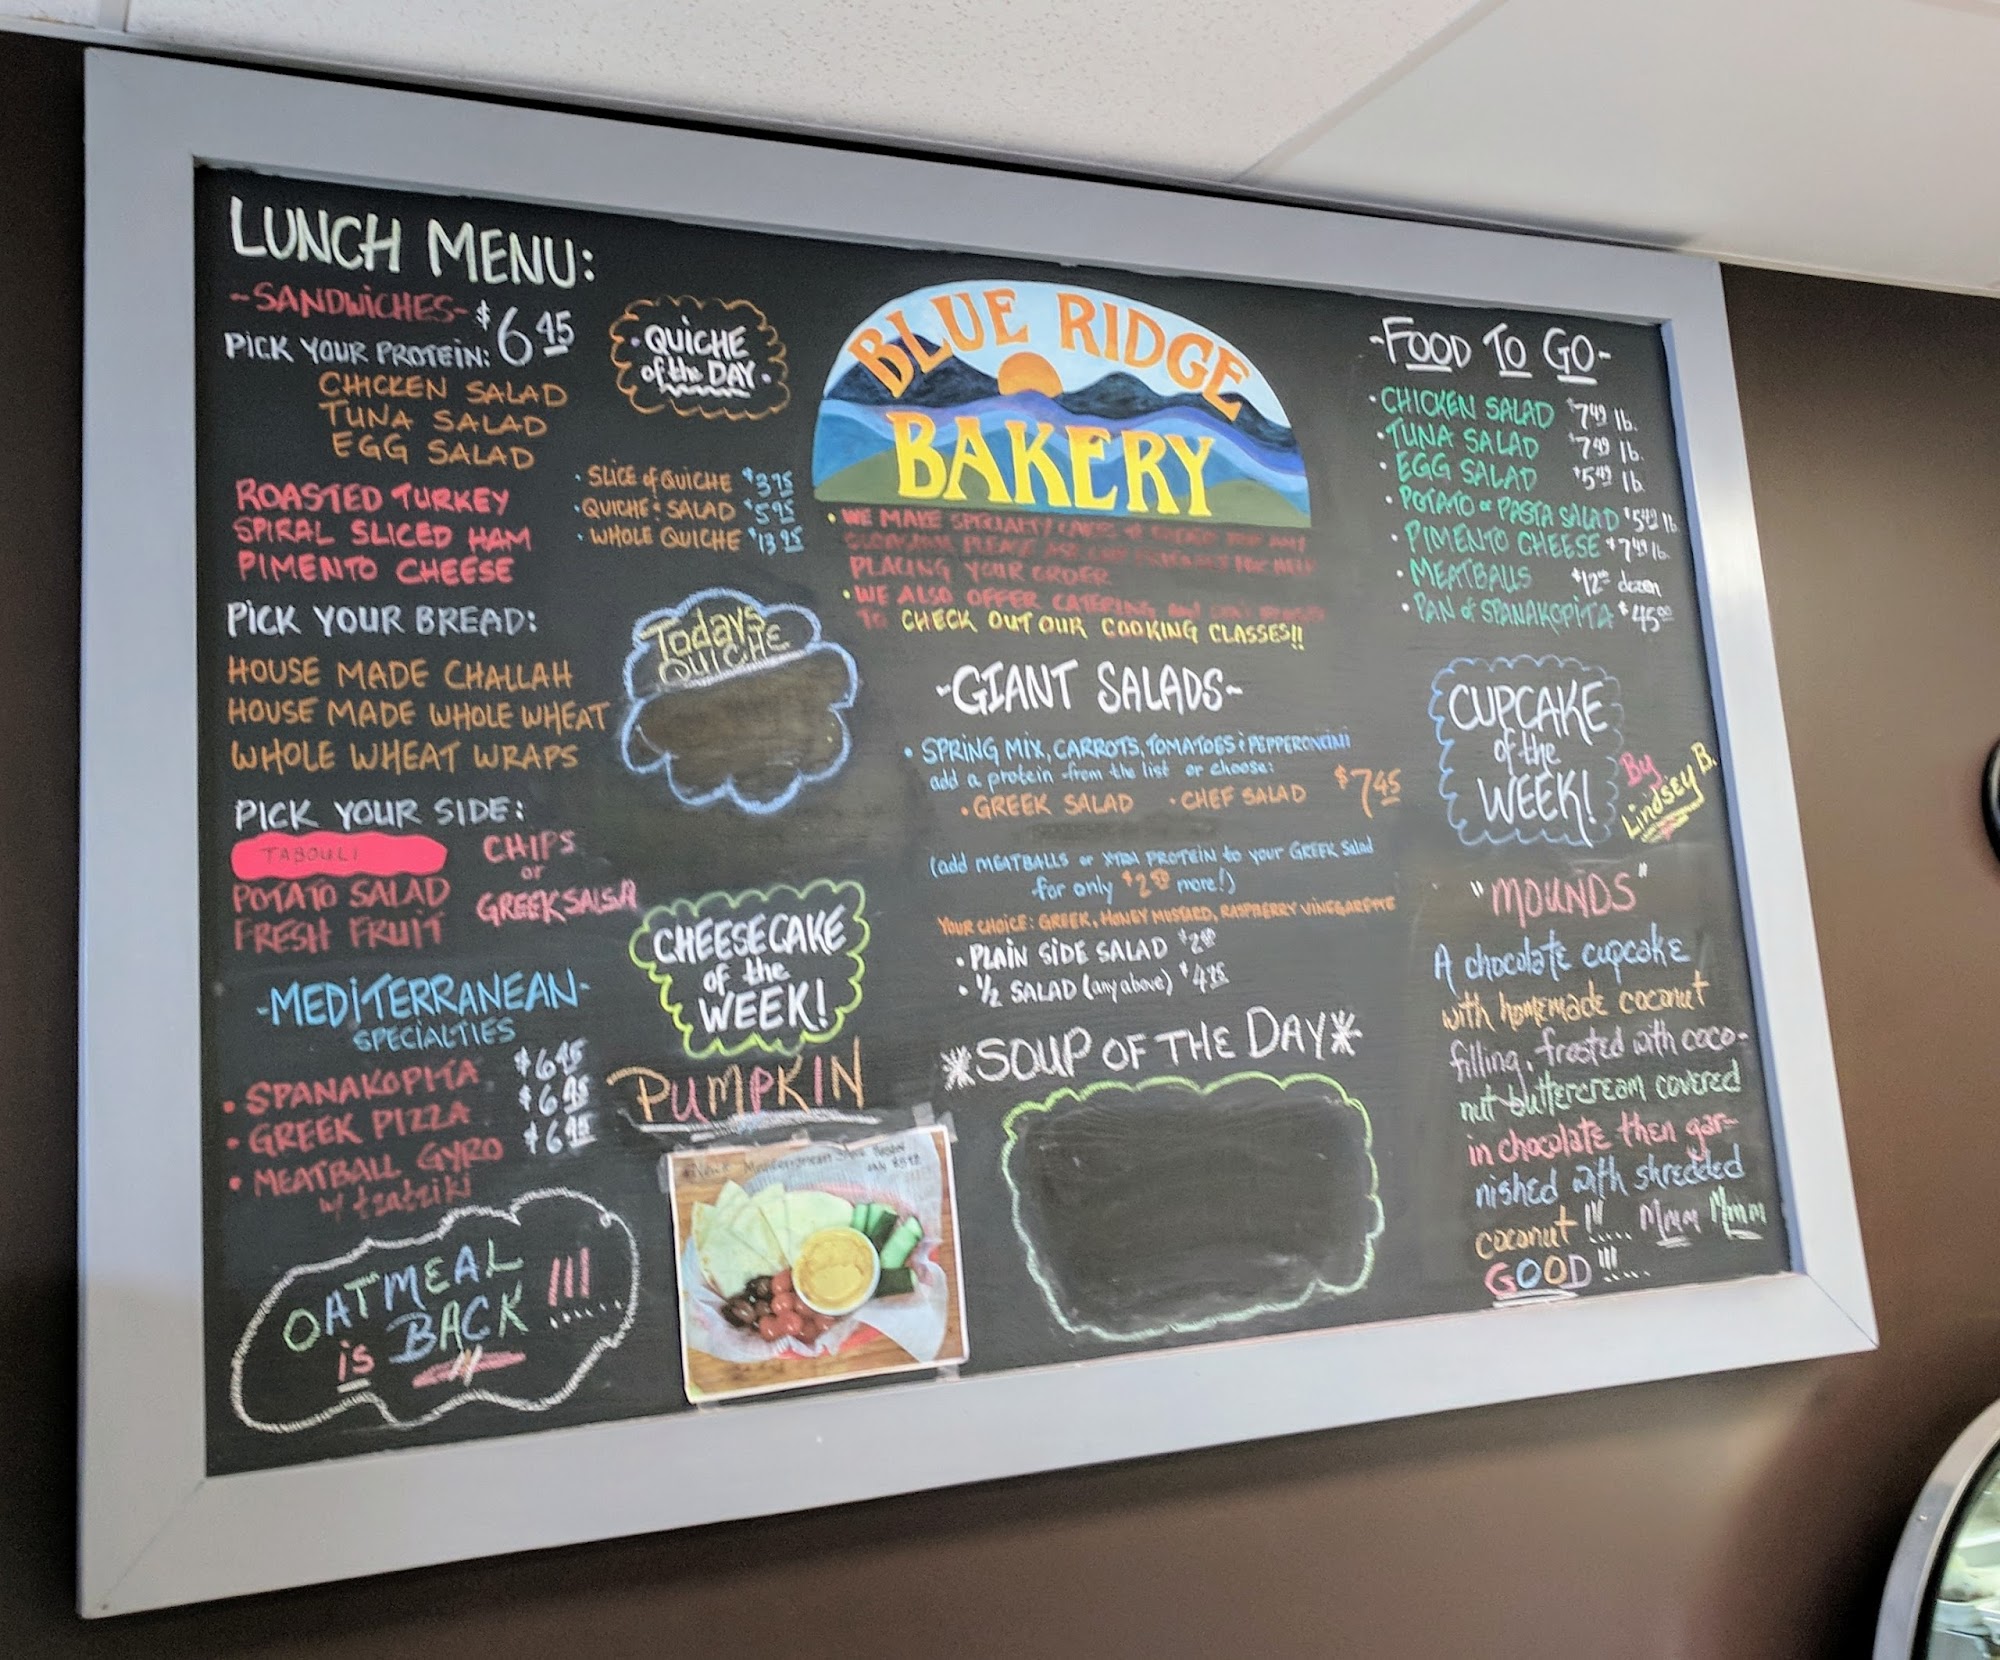 LUNCH MENU:
-SANDWICHES- $6.45
PICK YOUR PROTEIN:
CHICKEN SALAD
TUNA SALAD
EGG SALAD
ROASTED TURKEY
SPIRAL SLICED HAM
PIMENTO CHEESE
PICK YOUR BREAD:
HOUSE MADE CHALLAH
HOUSE MADE WHOLE WHEAT
WHOLE WHEAT WRAPS
PICK YOUR SIDE:
TABOULI
POTATO SALAD
FRESH FRUIT
CHIPS
or
GREEK SALSA
-MEDITERRANEAN-
SPECIALTIES
• SPANAKOPITA $6.45
• GREEK PIZZA $6.95
• MEATBALL GYRO $6.45
w/ tzatziki
OATMEAL
is BACK !!!
• QUICHE
of the DAY •
• SLICE of QUICHE $3.75
• QUICHE & SALAD $5.95
• WHOLE QUICHE $13.95
Todays
QUICHE
CHEESECAKE
of the
WEEK!
PUMPKIN
Mediterranean
BLUE RIDGE
BAKERY
• WE MAKE SPECIALTY CAKES
PLACING YOUR ORDER
• WE ALSO OFFER CATERING and
TO CHECK OUT OUR COOKING CLASSES!!
-GIANT SALADS-
• SPRING MIX, CARROTS, TOMATOES & PEPPERONCINI
add a protein from the list or choose:
• GREEK SALAD • CHEF SALAD $7.45
(add MEATBALLS or XTRA PROTEIN to your GREEK Salad
for only $2.50 more!)
YOUR CHOICE: GREEK, HONEY MUSTARD, RASPBERRY VINEGARETTE
• PLAIN SIDE SALAD
• 1/2 SALAD (any above)
*SOUP OF THE DAY*
-FOOD TO GO-
• CHICKEN SALAD $7.49 lb.
• TUNA SALAD $7.49 lb.
• EGG SALAD $5.49 lb.
• POTATO or PASTA SALAD $5.49 lb
• PIMENTO CHEESE $7.49 lb.
• MEATBALLS $12.00 dozen
• PAN of SPANAKOPITA $45.00
CUPCAKE
of the
WEEK!
By
Lindsey B.
"MOUNDS"
A chocolate cupcake
with homemade coconut
filling, frosted with coco-
nut buttercream covered
in chocolate then gar-
nished with shredded
coconut !!!..... Mmm Mmm
GOOD !!!.....